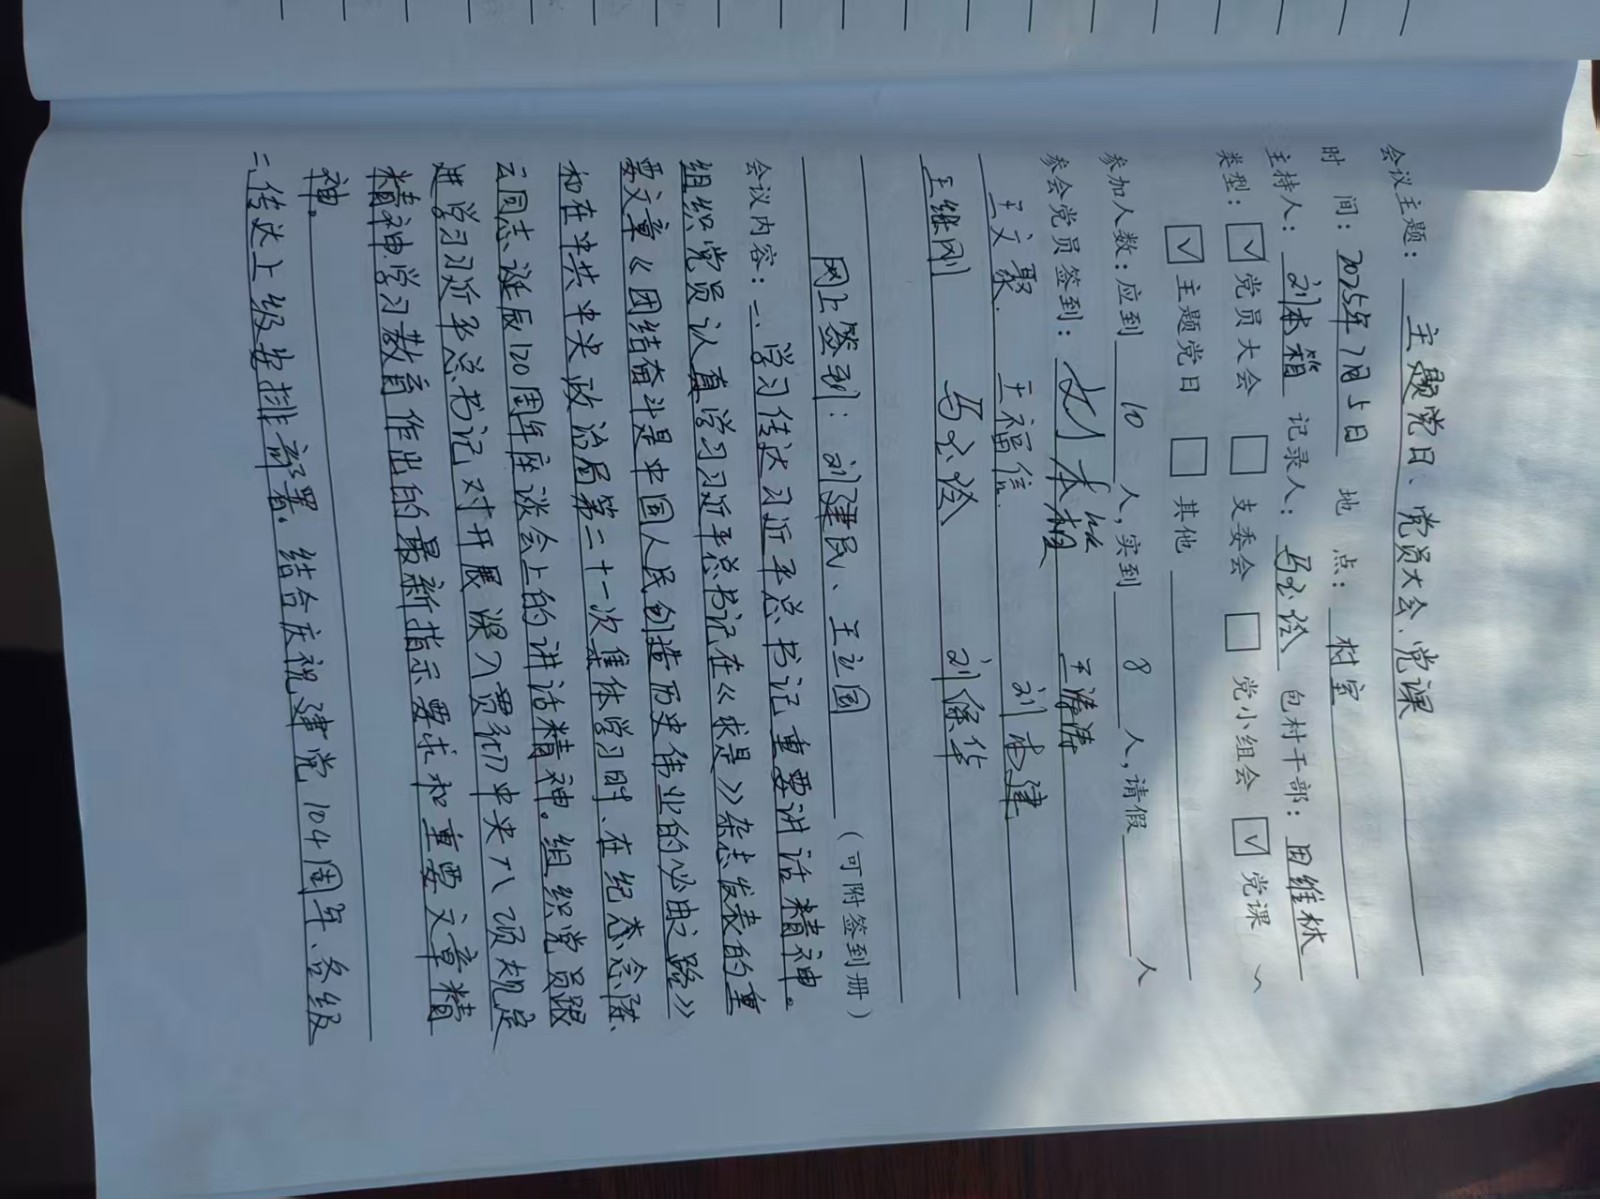 会议主题：主题党日、党员大会、党课
时 间：2025年7月5日 地 点：村室
主持人：刘本箱 记录人： 包村干部：田维林
类型：☑党员大会 □支委会 □党小组会 ☑党课
☑主题党日 □其他
参加人数：应到 10 人，实到 8 人，请假 人
参会党员签到：刘本箱 王海涛
王文聚. 王福信. 刘建
王继刚 刘保华
网上签到：刘建民、王立国 （可附签到册）
会议内容：一、学习传达习近平总书记重要讲话精神。
组织党员认真学习习近平总书记在《求是》杂志发表的重
要文章《团结奋斗是中国人民创造历史伟业的必由之路》
和在中共中央政治局第二十一次集体学习时、在纪念陈
云同志诞辰120周年座谈会上的讲话精神。组织党员跟
进学习习近平总书记对开展深入贯彻中央八项规定
精神学习教育作出的最新指示要求和重要文章精
神。
二、传达上级安排部署。结合庆祝建党104周年、各级